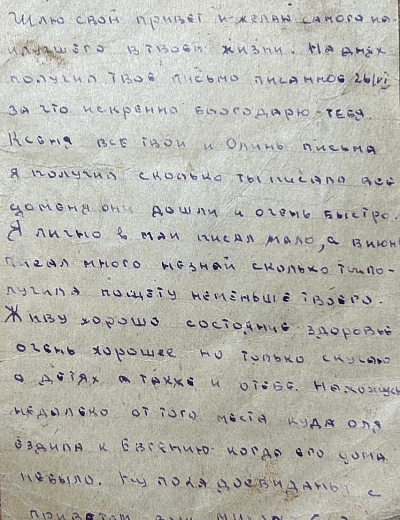 Шлю свой привет и желаю самого на-
илучшего в твоей жизни. На днях
получил твоё письмо писанное 26/VI
за что искренно благодарю тебя.
Ксеня все твои и Олины письма
я получил сколько ты писала все
доменя они дошли и очень быстро.
Я лично в маи писал мало, а виюне
писал много незнаю сколько ты по-
лучила пощёту неменьше твоего.
Живу хорошо состояние здоровье
очень хорошее но только скучаю
о детях а также и отебе. Нахожусь
недалеко от того места куда Оля
ездила к Евгению когда его дома
небыло. Ну пока досвиданья с
приветом